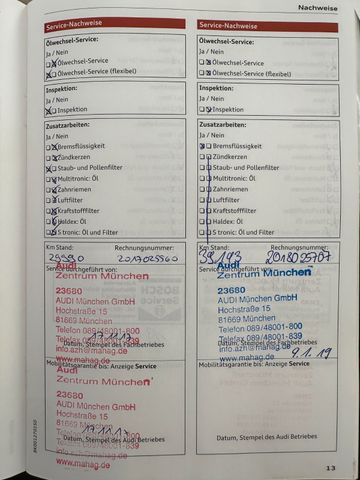 Nachweise
Service-Nachweise
Ölwechsel-Service:
Ja / Nein
Ölwechsel-Service
Ölwechsel-Service (flexibel)
Inspektion:
Ja / Nein
Inspektion
Zusatzarbeiten:
Ja / Nein
Bremsflüssigkeit
Zündkerzen
Staub- und Pollenfilter
Multitronic: Öl
Zahnriemen
Luftfilter
Kraftstofffilter
Haldex: Öl
S tronic: Öl und Filter
Km Stand: Rechnungsnummer:
Service durchgeführt von:
Audi
Zentrum München
23680
AUDI München GmbH
Hochstraße 15
81669 München
Telefon 089/48001-800
Telefax 089/48001-839
info.azh@mahag.de
www.mahag.de
17.11.17
Datum, Stempel des Fachbetriebes
Mobilitätsgarantie bis: Anzeige Service
Audi
Zentrum München
23680
AUDI München GmbH
Hochstraße 15
81669 München
Telefon 089/48001-800
Telefax 089/48001-839
info.azh@mahag.de
www.mahag.de
17.11.17
Datum, Stempel des Audi Betriebes
Service-Nachweise
Ölwechsel-Service:
Ja / Nein
Ölwechsel-Service
Ölwechsel-Service (flexibel)
Inspektion:
Ja / Nein
Inspektion
Zusatzarbeiten:
Ja / Nein
Bremsflüssigkeit
Zündkerzen
Staub- und Pollenfilter
Multitronic: Öl
Zahnriemen
Luftfilter
Kraftstofffilter
Haldex: Öl
S tronic: Öl und Filter
Km Stand: Rechnungsnummer:
39.193 2018025707
Service durchgeführt von:
Audi
Zentrum München
23680
AUDI München GmbH
Hochstraße 15
81669 München
Telefon 089/48001-800
Telefax 089/48001-839
info.azh@mahag.de
www.mahag.de
9.1.19
Datum, Stempel des Fachbetriebes
Mobilitätsgarantie bis: Anzeige Service
Datum, Stempel des Audi Betriebes
13